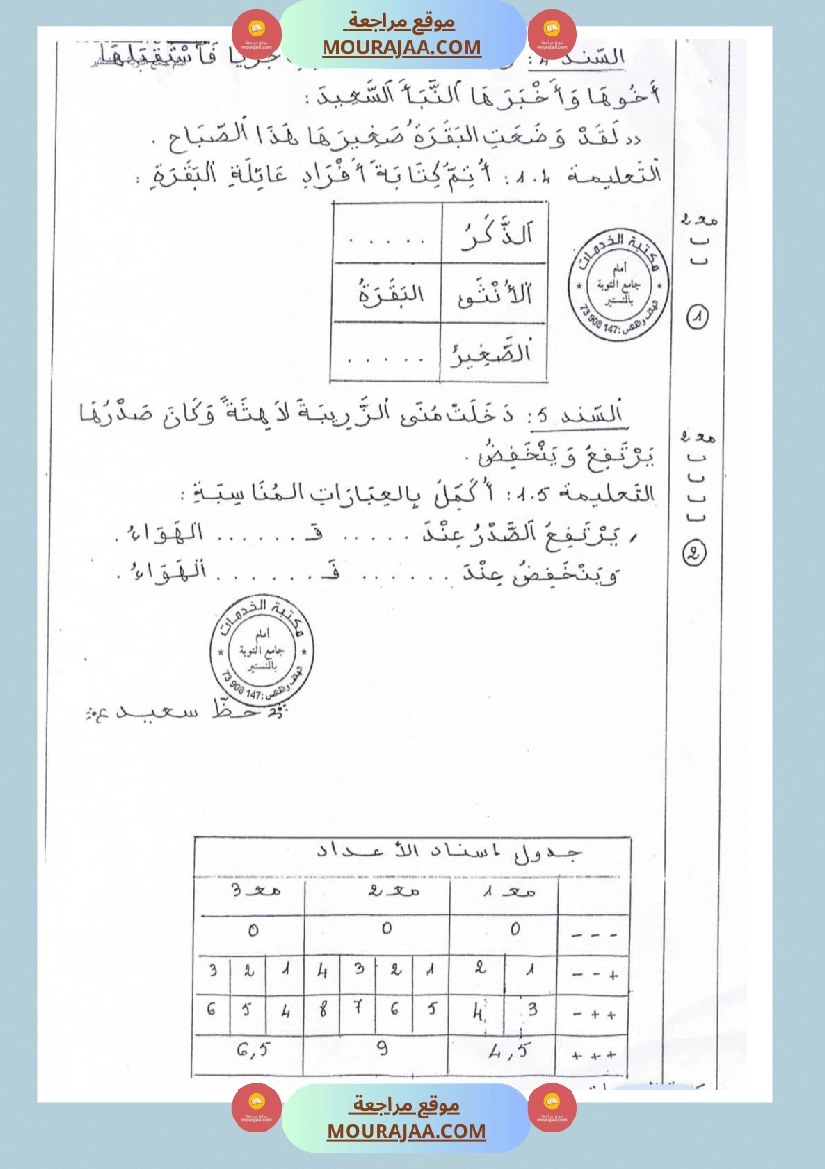 موقع مراجعة
MOURAJAA.COM
السّند 4: جَرْيًا فَاسْتَقْبَلَهَا
أَخُوهَا وَأَخْبَرَهَا النَّبَأَ السَّعِيدَ :
« لَقَدْ وَضَعَتِ البَقَرَةُ صَغِيرَهَا هَذَا الصَّبَاحِ .
التّعليمة 1.4: أُتِمُّ كِتَابَةَ أَفْرَادِ عَائِلَةِ البَقَرَةِ :
مع 2
الذَّكَرُ .....
الأُنْثَى البَقَرَةُ
الصَّغِيرُ .....
1
مكتبة الخدمات
أمام
جامع التوبة
بالمنستير
73 908 147
السّند 5: دَخَلَتْ مُنَى الزَّرِيبَةَ لاَهِثَةً وَكَانَ صَدْرُهَا
يَرْتَفِعُ وَيَنْخَفِضُ .
مع 2
التّعليمة 1.5: أُكَمِّلُ بِالعِبَارَاتِ المُنَاسِبَةِ :
يَرْتَفِعُ الصَّدْرُ عِنْدَ ..... فَـ ...... الهَوَاءُ .
وَيَنْخَفِضُ عِنْدَ ...... فَـ ....... الهَوَاءُ .
2
مكتبة الخدمات
أمام
جامع التوبة
بالمنستير
73 908 147
حظّ سعيد
جدول إسناد الأعداد
مع 1 مع 2 مع 3
--- 0 0 0
+-- 1 2 1 2 3 4 1 2 3
++- 3 4 5 6 7 8 4 5 6
+++ 4,5 9 6,5
موقع مراجعة
MOURAJAA.COM